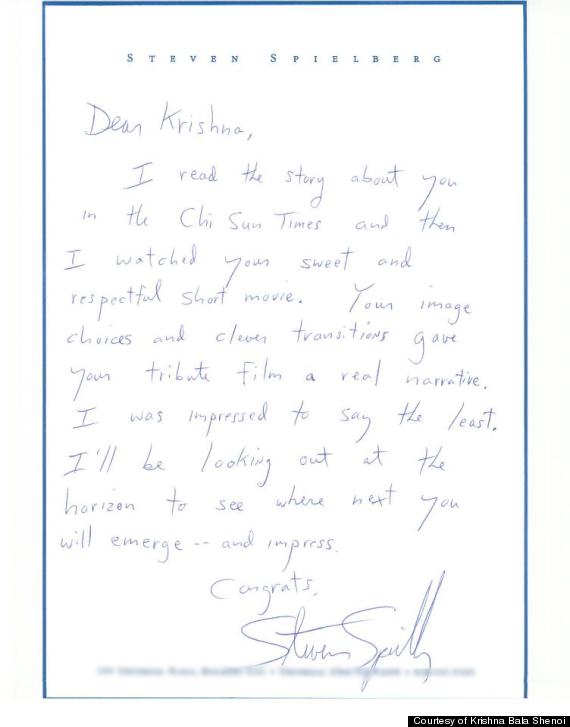 STEVEN SPIELBERG
Dear Krishna,
I read the story about you
in the Chi Sun Times and then
I watched your sweet and
respectful short movie. Your image
choices and clever transitions gave
your tribute film a real narrative.
I was impressed to say the least.
I'll be looking out at the
horizon to see where next you
will emerge -- and impress.
Congrats,
Steven Spielberg
Courtesy of Krishna Bala Shenoi